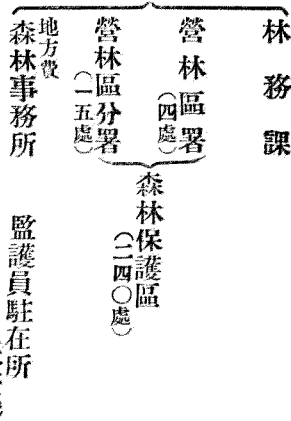 林務課
營林區署
（四處）
營林區分署
（一五處）
森林保護區
（二四〇處）
地方費
森林事務所
監護員駐在所